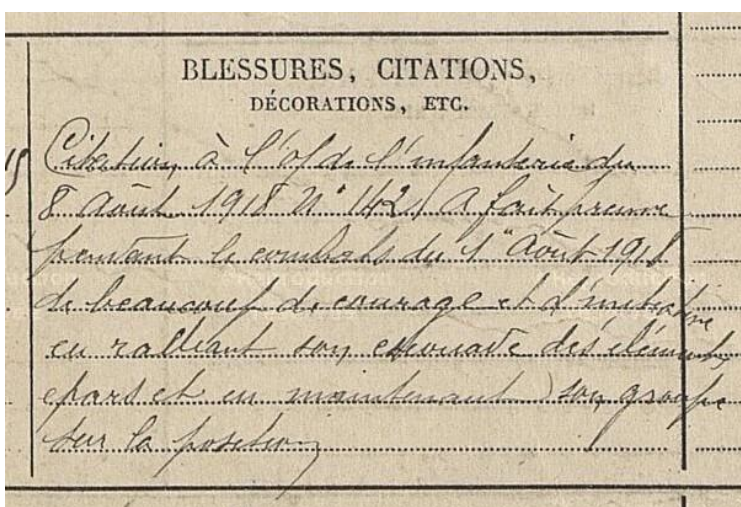 BLESSURES, CITATIONS,
DÉCORATIONS, ETC.
Citation à l'O/ de l'infanterie du
8 Août 1918 N° 142, A fait preuve
pendant le combats du 1er Août 1918
de beaucoup de courage et d'initiative
en ralliant son escouade des éléments
épars et en maintenant son groupe
sur la position